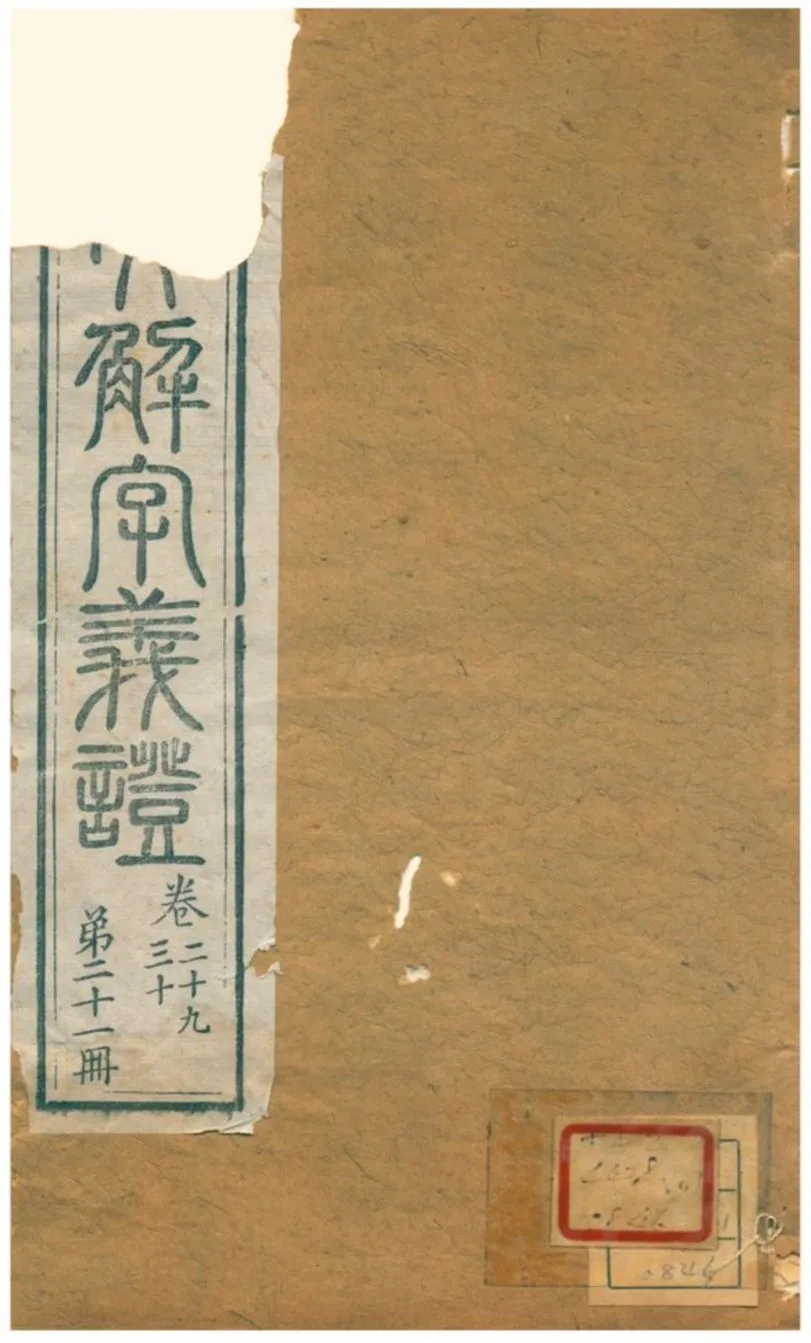 解字義證
卷二十九
三十
第二十一冊